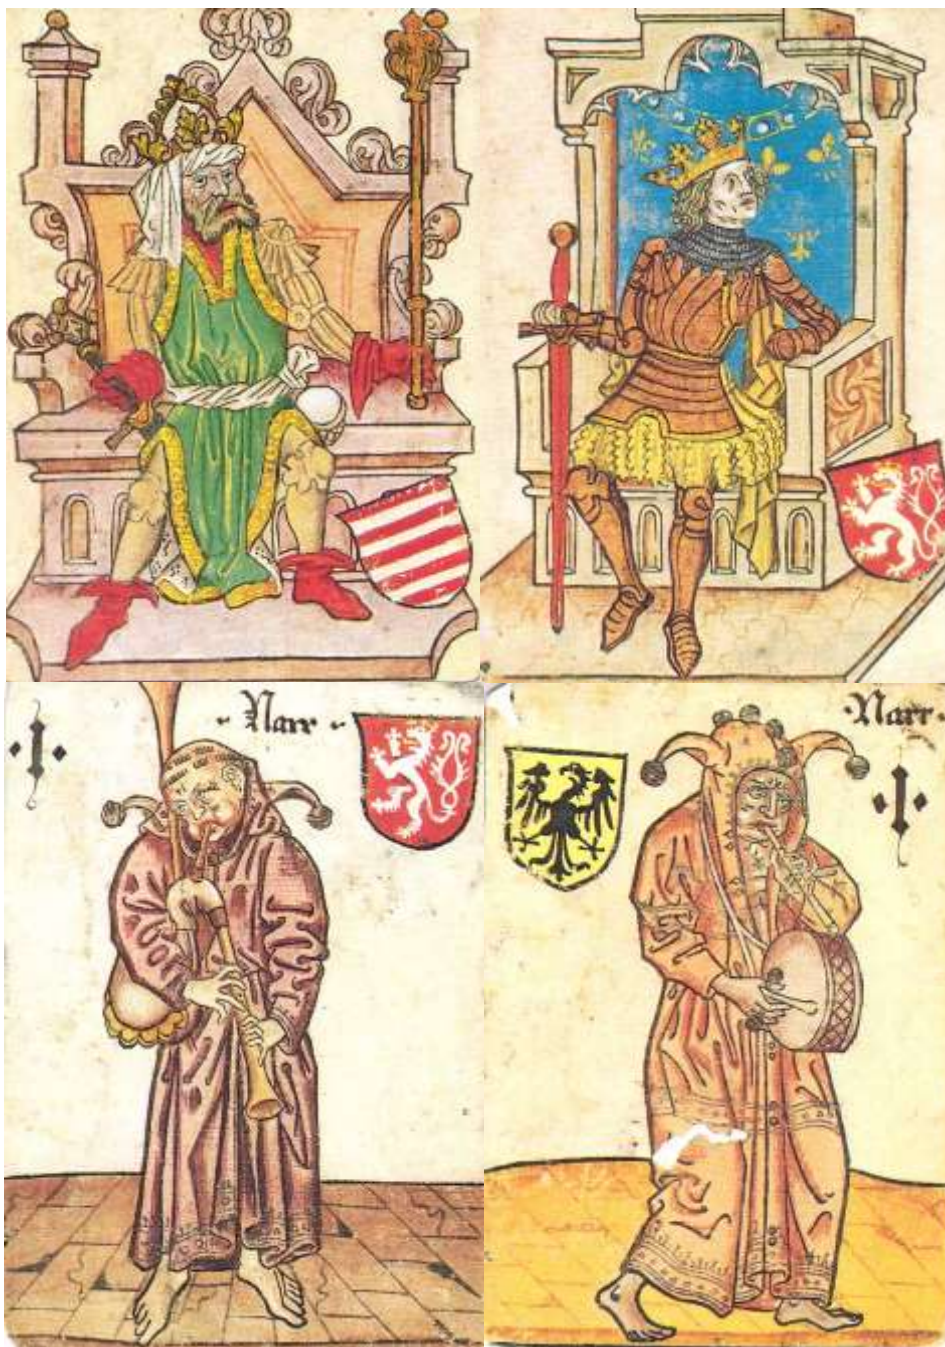 ·I·
· Narr ·
·Narr·
·I·